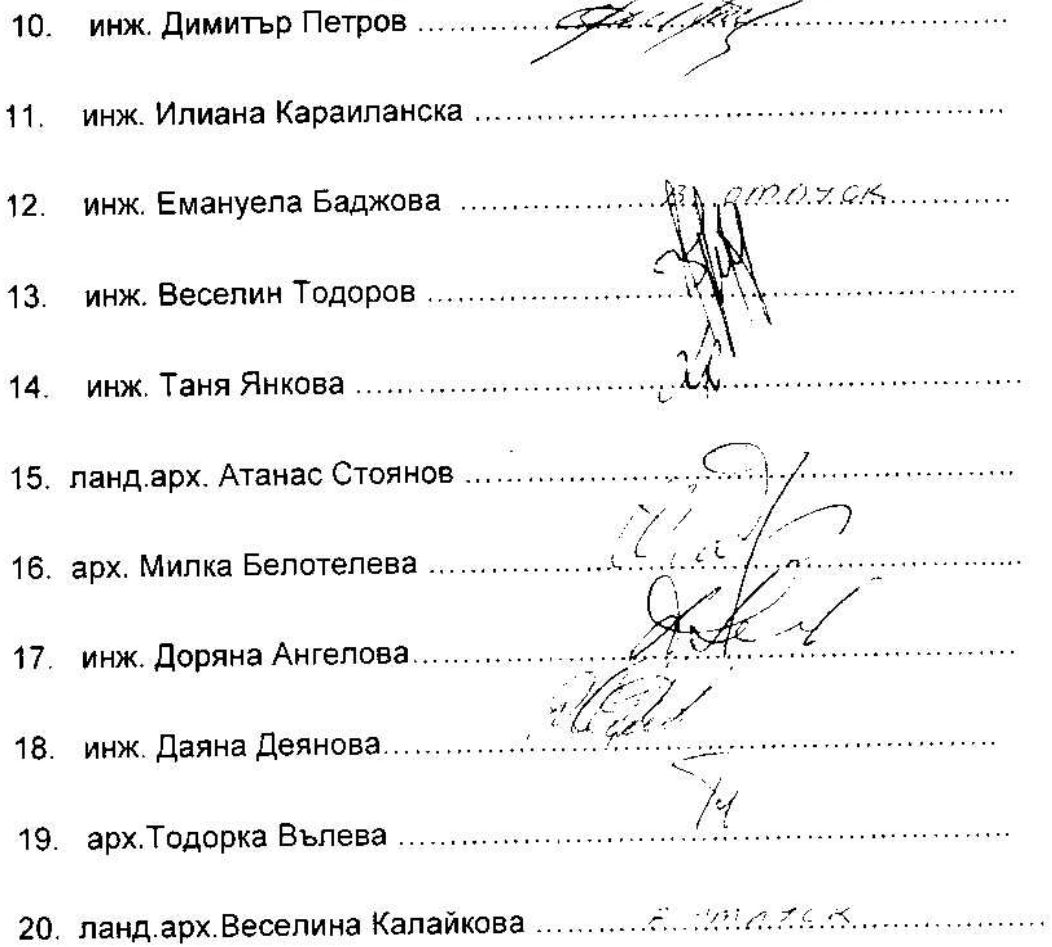 10. инж. Димитър Петров ..........
11. инж. Илиана Караиланска ..........
12. инж. Емануела Баджова .......... В отпуск ..........
13. инж. Веселин Тодоров ..........
14. инж. Таня Янкова ..........
15. ланд.арх. Атанас Стоянов ..........
16. арх. Милка Белотелева ..........
17. инж. Доряна Ангелова ..........
18. инж. Даяна Деянова ..........
19. арх.Тодорка Вълева ..........
20. ланд.арх.Веселина Калайкова .......... В отпуск ..........